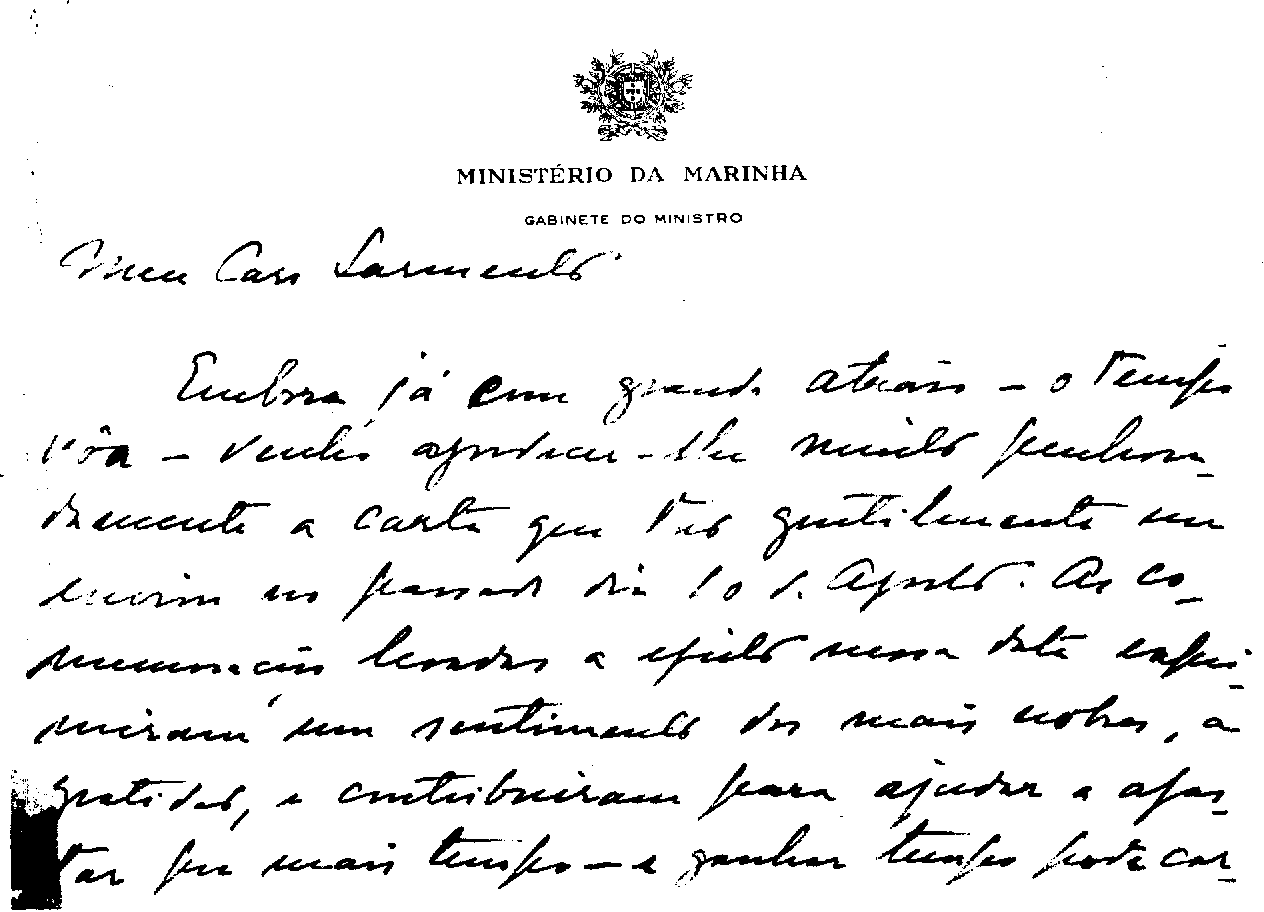 MINISTÉRIO DA MARINHA
GABINETE DO MINISTRO
Meu Caro Sarmento
Embora já com grande atraso – o tempo
vôa – venho agradecer-lhe muito penhora-
damente a carta que tão gentilmente me
enviou no passado dia 10 d. Agosto. As co-
memorações levadas a efeito nessa data expri-
miram um sentimento dos mais nobres, a
gratidão, e contribuiram para ajudar a afas-
tar por mais tempo – e ganhar tempo pode cor-